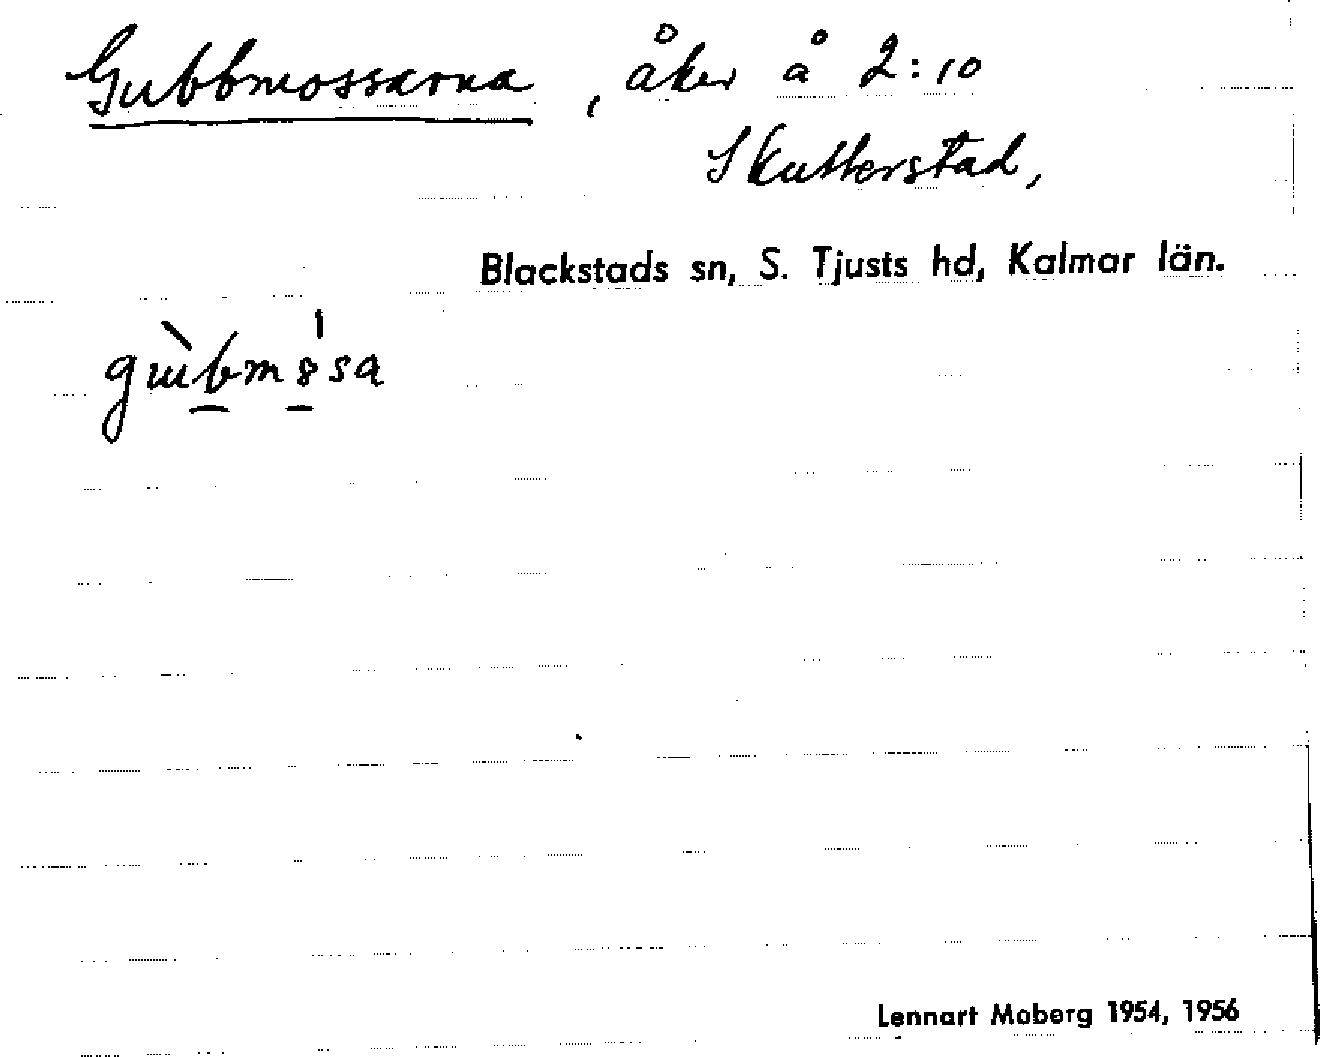 Gubbmossarna, åker å 2:10
Skutterstad,
Blackstads sn, S. Tjusts hd, Kalmar län.
Lennart Moberg 1954, 1956